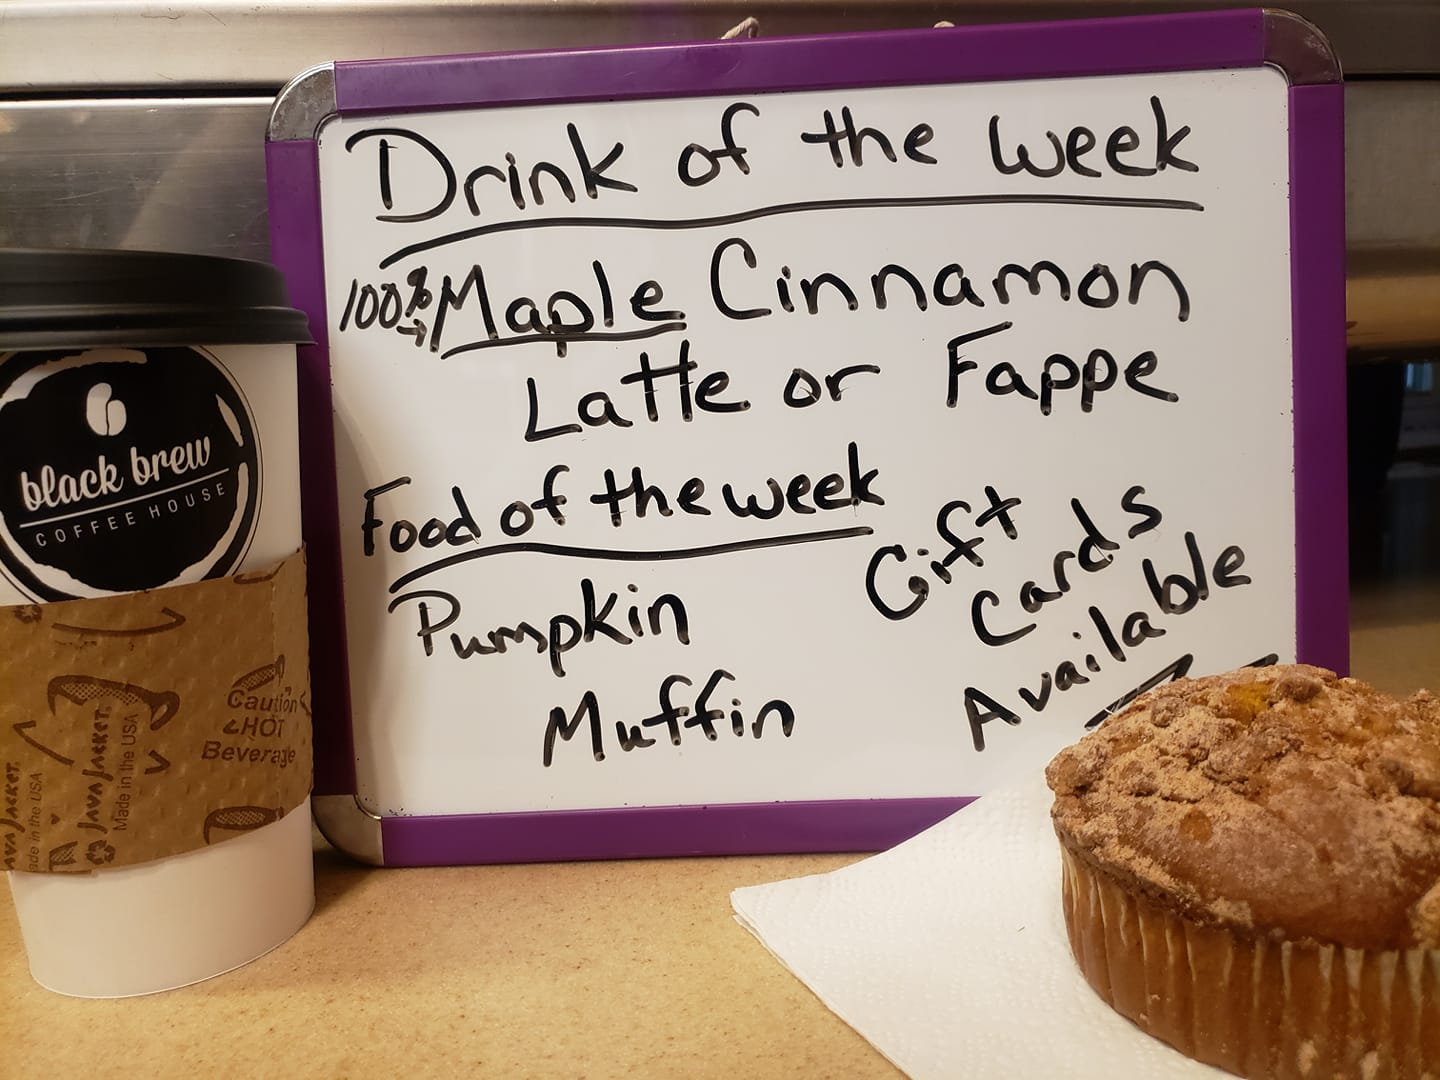 Drink of the week
100% Maple Cinnamon
Latte or Fappe
Food of the week
Pumpkin
Muffin
Gift
Cards
Available
black brew
COFFEE HOUSE
Caution
HOT
Beverage
JAVA JACKET.
Made in the USA
AVA JACKET.
ade in the USA